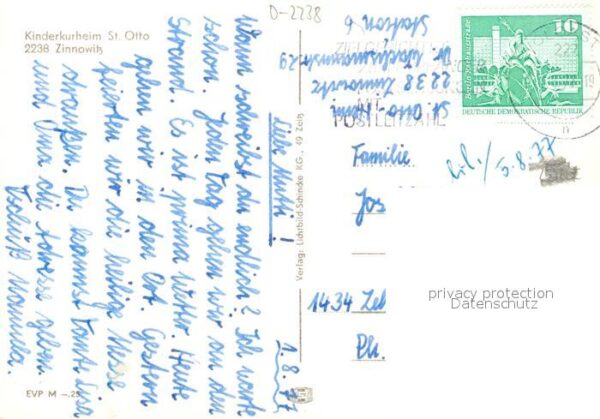 D-2238
Kinderkurheim St. Otto
2238 Zinnowitz
1.8.77
Liebe Mutti!
Wann schreibst du endlich? Ich warte
schon. Jeden Tag gehen wir an den
Strand. Es ist prima hier. Heute
gehen wir in den Ort. Gestern
feierten wir die heilige Messe
draußen. Du kannst Tante Lisa
und Oma die Adresse geben.
Tschüß Manuela.
EVP M –.25
Verlag: Lichtbild-Schincke KG., 49 Zeitz
St. Otto Heim
2238 Zinnowitz
Dr. Wachsmannstr. 29
Station 6
POSTLEITZAHL
10
DEUTSCHE DEMOKRATISCHE REPUBLIK
5.8.77
Familie
Jos
1434 Zeh
Ph.
privacy protection
Datenschutz